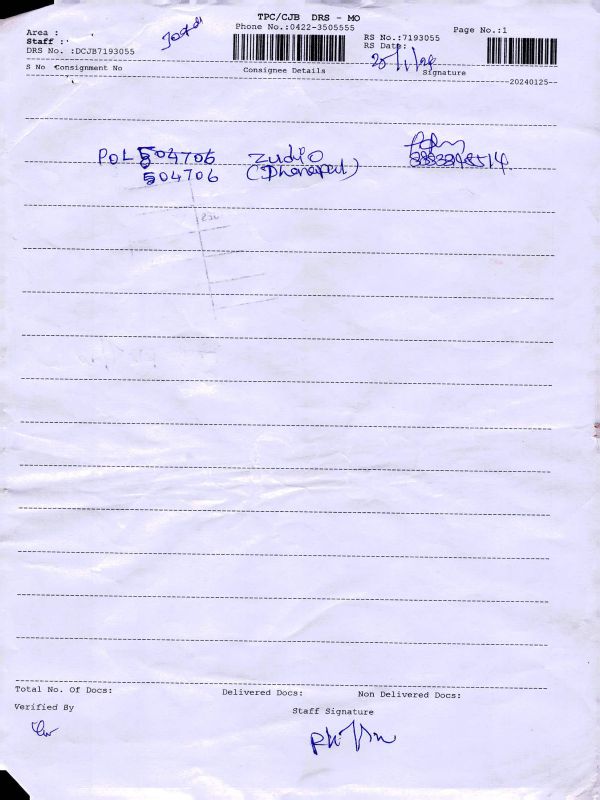 TPC/CJB DRS - MO
Phone No.:0422-3505555
Page No.:1
Area :
Staff :
DRS No. :DCJB7193055
RS No.:7193055
RS Date:
25/1/24
S No Consignment No
Consignee Details
Signature
--20240125--
POL 504706 Zudio
504706 (Dhanapal)
Total No. Of Docs:
Delivered Docs:
Non Delivered Docs:
Verified By
Staff Signature